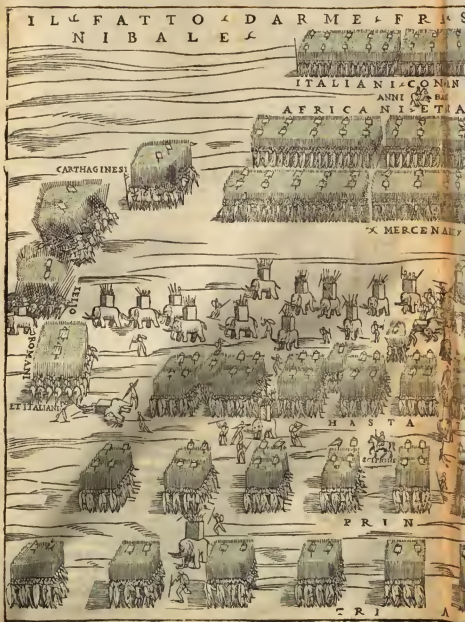 IL FATTO DARME FRA S
NIBALE
ITALIANI CON N
ANNI BA
AFRICANI ETIA
CARTHAGINESI
MERCENARY
LELIO
ROMANI
ET ITALIANI
HASTA
SCIPIONE
PRIN
TRI A